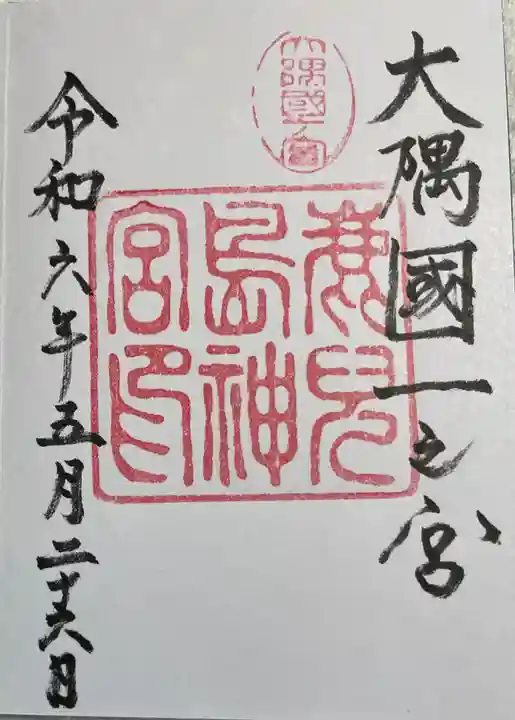 大隅國一之宮
大隅國一宮
鹿兒
島神
宮印
令和六年五月二十六日